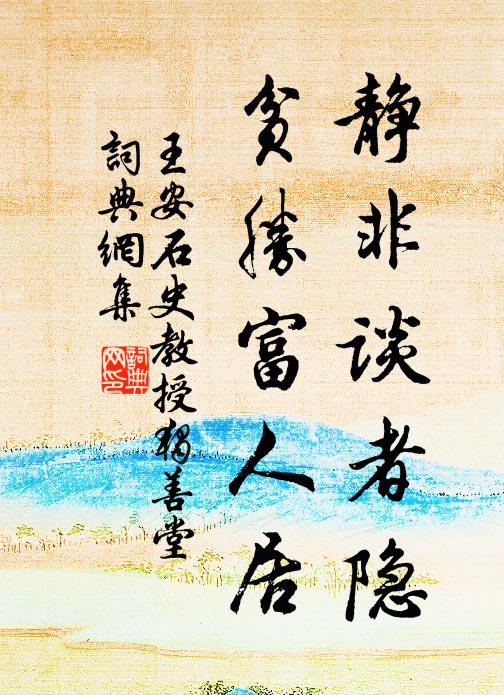 静非谈者隐
贫勝富人居
王安石史教授独善堂
詞典網集
詞典
网印